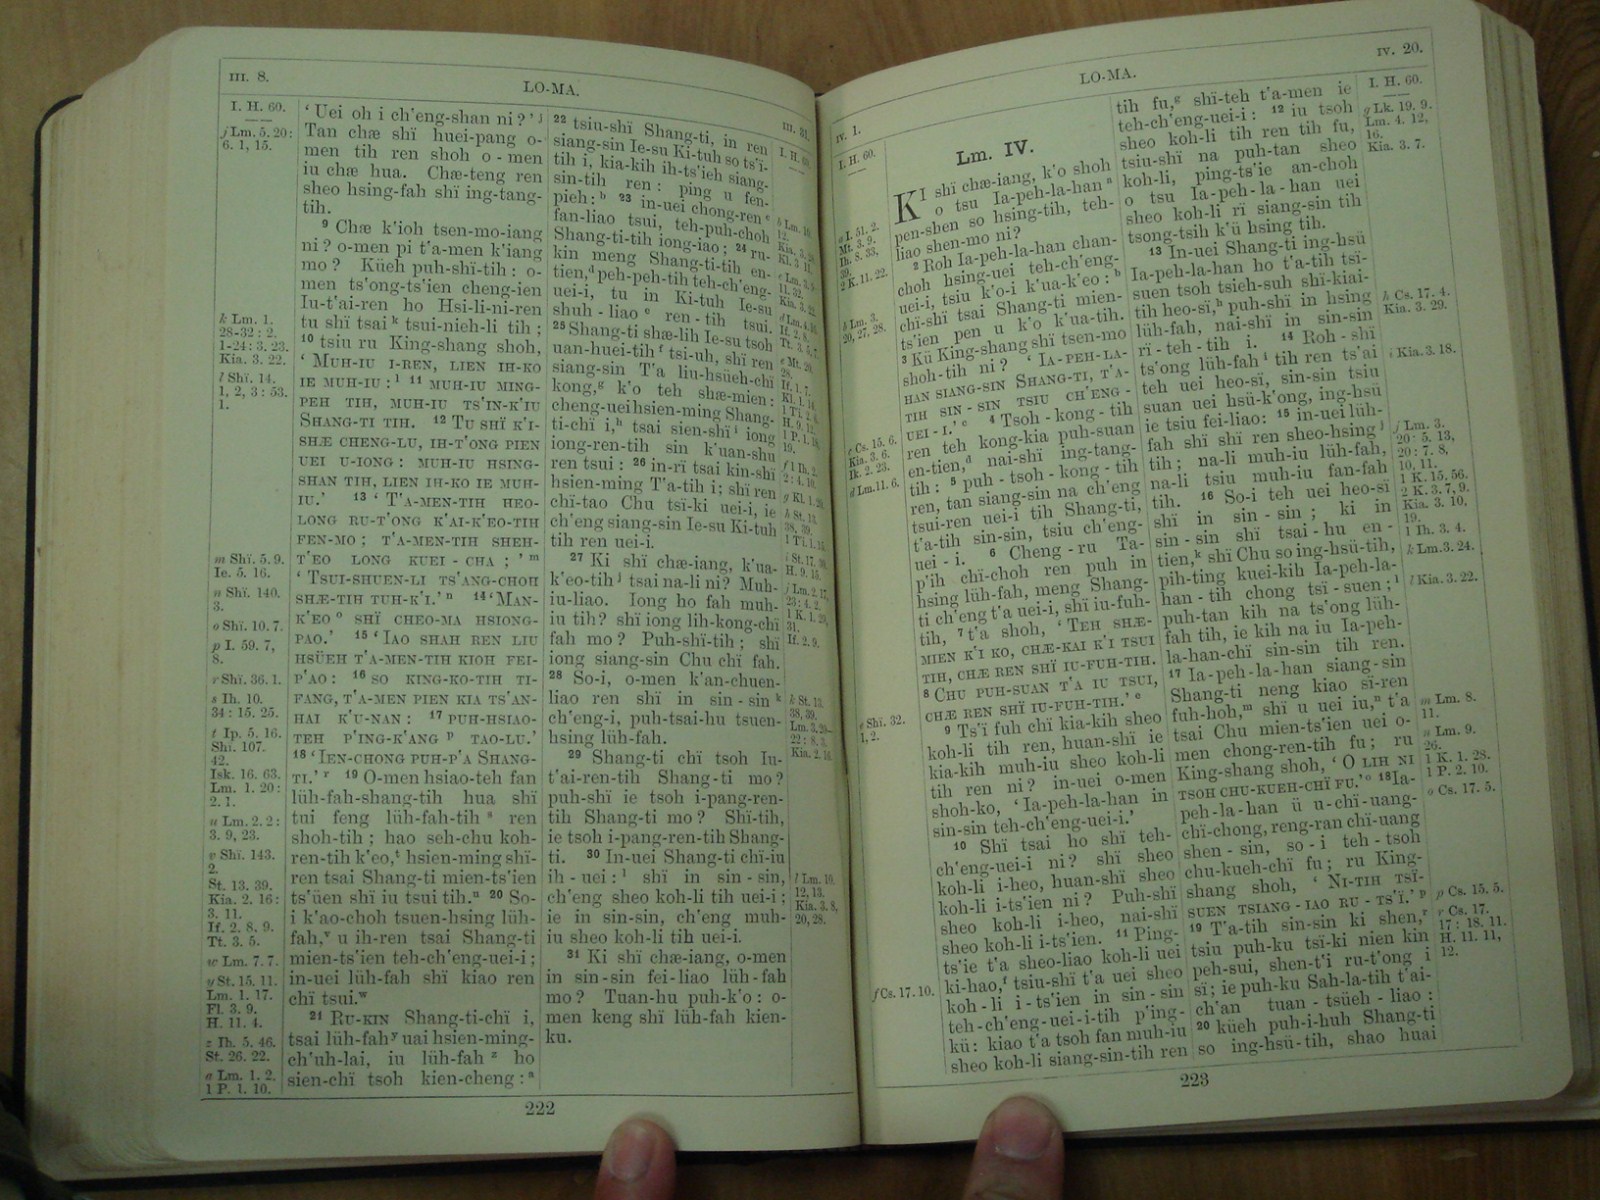 III. 8.
LO-MA.
III. 31.
I. H. 60.
j Lm. 5. 20:
6. 1, 15.
k Lm. 1.
28-32 : 2.
1-24 : 3. 23.
Kia. 3. 22.
l Shï. 14.
1, 2, 3 : 53.
1.
m Shï. 5. 9.
Ie. 5. 16.
n Shï. 140.
3.
o Shï. 10. 7.
p I. 59. 7,
8.
r Shï. 36. 1.
s Ih. 10.
34 : 15. 25.
t Ip. 5. 16.
Shï. 107.
42.
Isk. 16. 63.
Lm. 1. 20 :
2. 1.
u Lm. 2. 2 :
3. 9, 23.
v Shï. 143.
2.
St. 13. 39.
Kia. 2. 16 :
3. 11.
If. 2. 8, 9.
Tt. 3. 5.
w Lm. 7. 7.
y St. 15. 11.
Lm. 1. 17.
Fl. 3. 9.
H. 11. 4.
z Ih. 5. 46.
St. 26. 22.
a Lm. 1. 2.
1 P. 1. 10.
‘ Uei oh i ch'eng-shan ni ? ’ j
Tan chæ shï huei-pang o-
men tih ren shoh o - men
iu chæ hua. Chæ-teng ren
sheo hsing-fah shï ing-tang-
tih.
9 Chæ k'ioh tsen-mo-iang
ni ? o-men pi t'a-men k'iang
mo ? Küeh puh-shï-tih : o-
men ts'ong-ts'ien cheng-ien
Iu-t'ai-ren ho Hsi-li-ni-ren
tu shï tsai k tsui-nieh-li tih ;
10 tsiu ru King-shang shoh,
‘ MUH-IU I-REN, LIEN IH-KO
IE MUH-IU : l 11 MUH-IU MING-
PEH TIH, MUH-IU TS'IN-K'IU
SHANG-TI TIH. 12 TU SHÏ K'I-
SHÆ CHENG-LU, IH-T'ONG PIEN
UEI U-IONG : MUH-IU HSING-
SHAN TIH, LIEN IH-KO IE MUH-
IU.’ 13 ‘ T'A-MEN-TIH HEO-
LONG RU-T'ONG K'AI-K'EO-TIH
FEN-MO ; T'A-MEN-TIH SHEH-
T'EO LONG KUEI - CHA ; ’ m
‘ TSUI-SHUEN-LI TS'ANG-CHOH
SHÆ-TIH TUH-K'I.’ n 14 ‘ MAN-
K'EO o SHÏ CHEO-MA HSIONG-
PAO.’ 15 ‘ IAO SHAH REN LIU
HSÜEH T'A-MEN-TIH KIOH FEI-
P'AO : 16 SO KING-KO-TIH TI-
FANG, T'A-MEN PIEN KIA TS'AN-
HAI K'U-NAN : 17 PUH-HSIAO-
TEH P'ING-K'ANG p TAO-LU.’
18 ‘ IEN-CHONG PUH-P'A SHANG-
TI.’ r 19 O-men hsiao-teh fan
lüh-fah-shang-tih hua shï
tui feng lüh-fah-tih s ren
shoh-tih ; hao seh-chu koh-
ren-tih k'eo, t hsien-ming shï-
ren tsai Shang-ti mien-ts'ien
ts'üen shï iu tsui tih. u 20 So-
i k'ao-choh tsuen-hsing lüh-
fah, v u ih-ren tsai Shang-ti
mien-ts'ien teh-ch'eng-uei-i ;
in-uei lüh-fah shï kiao ren
chï tsui. w
21 RU-KIN Shang-ti-chï i,
tsai lüh-fah y uai hsien-ming-
ch'uh-lai, iu lüh-fah z ho
sien-chï tsoh kien-cheng : a
22 tsiu-shï Shang-ti, in ren
siang-sin Ie-su Ki-tuh so ts'ï-
tih i, kia-kih ih-ts'ieh siang-
sin-tih ren : ping u fen-
pieh : b 23 in-uei chong-ren c
fan-liao tsui, teh-puh-choh
Shang-ti-tih iong-iao ; 24 ru-
kin meng Shang-ti-tih en-
tien, d peh-peh-tih teh-ch'eng-
uei-i, tu in Ki-tuh Ie-su
shuh - liao e ren - tih tsui.
25 Shang-ti shæ-lih Ie-su tsoh
uan-huei-tih f tsi-uh, shï ren
siang-sin T'a liu-hsüeh-chï
kong, g k'o teh shæ-mien :
cheng-uei hsien-ming Shang-
ti-chï i, h tsai sien-shï i iong
iong-ren-tih sin k'uan-shu
ren tsui : 26 in-rï tsai kin-shï
hsien-ming T'a-tih i ; shï ren
chï-tao Chu tsï-ki uei-i, ie
ch'eng siang-sin Ie-su Ki-tuh
tih ren uei-i.
27 Ki shï chæ-iang, k'ua-
k'eo-tih j tsai na-li ni ? Muh-
iu-liao. Iong ho fah muh-
iu tih ? shï iong lih-kong-chï
fah mo ? Puh-shï-tih ; shï
iong siang-sin Chu chï fah.
28 So-i, o-men k'an-chuen-
liao ren shï in sin - sin k
ch'eng-i, puh-tsai-hu tsuen-
hsing lüh-fah.
29 Shang-ti chï tsoh Iu-
t'ai-ren-tih Shang-ti mo ?
puh-shï ie tsoh i-pang-ren-
tih Shang-ti mo ? Shï-tih,
ie tsoh i-pang-ren-tih Shang-
ti. 30 In-uei Shang-ti chï-iu
ih - uei : l shï in sin - sin,
ch'eng sheo koh-li tih uei-i ;
ie in sin-sin, ch'eng muh-
iu sheo koh-li tih uei-i.
31 Ki shï chæ-iang, o-men
in sin-sin fei-liao lüh - fah
mo ? Tuan-hu puh-k'o : o-
men keng shï lüh-fah kien-
ku.
k St. 13.
38, 39.
l Lm. 10.
12, 13.
Kia. 3. 8,
20, 28.
222
IV. 1.
LO-MA.
IV. 20.
I. H. 60.
a I. 51. 2.
Mt. 3. 9.
Ih. 8. 33,
39.
2 K. 11. 22.
b Lm. 3.
20, 27, 28.
c Cs. 15. 6.
Kia. 3. 6.
Ik. 2. 23.
d Lm. 11. 6.
e Shï. 32.
1, 2.
f Cs. 17. 10.
Lm. IV.
KI shï chæ-iang, k'o shoh
o tsu Ia-peh-la-han a
pen-shen so hsing-tih, teh-
liao shen-mo ni ?
2 Roh Ia-peh-la-han chan-
choh hsing-uei teh-ch'eng-
uei-i, tsiu k'o-i k'ua-k'eo : b
chï-shï tsai Shang-ti mien-
ts'ien pen u k'o k'ua-tih.
3 Kü King-shang shï tsen-mo
shoh-tih ni ? ‘ IA-PEH-LA-
HAN SIANG-SIN SHANG-TI, T'A-
TIH SIN - SIN TSIU CH'ENG -
UEI - I.’ c 4 Tsoh - kong - tih
ren teh kong-kia puh-suan
en-tien, d nai-shï ing-tang-
tih : 5 puh - tsoh - kong - tih
ren, tan siang-sin na ch'eng
tsui-ren uei-i tih Shang-ti,
t'a-tih sin-sin, tsiu ch'eng-
uei - i. 6 Cheng - ru Ta-
p'ih chï-choh ren puh in
hsing lüh-fah, meng Shang-
ti ch'eng t'a uei-i, shï iu-fuh-
tih, 7 t'a shoh, ‘ TEH SHÆ-
MIEN K'I KO, CHÆ-KAI K'I TSUI
TIH, CHÆ REN SHÏ IU-FUH-TIH.
8 CHU PUH-SUAN T'A IU TSUI,
CHÆ REN SHÏ IU-FUH-TIH.’ e
9 Ts'ï fuh chï kia-kih sheo
koh-li tih ren, huan-shï ie
kia-kih muh-iu sheo koh-li
tih ren ni ? in-uei o-men
shoh-ko, ‘ Ia-peh-la-han in
sin-sin teh-ch'eng-uei-i.’
10 Shï tsai ho shï teh-
ch'eng-uei-i ni ? shï sheo
koh-li i-heo, huan-shï sheo
koh-li i-ts'ien ni ? Puh-shï
sheo koh-li i-heo, nai-shï
sheo koh-li i-ts'ien. 11 Ping-
ts'ie t'a sheo-liao koh-li uei
ki-hao, f tsiu-shï t'a uei sheo
koh - li i - ts'ien in sin - sin
teh-ch'eng-uei-i-tih p'ing-
kü : kiao t'a tsoh fan muh-iu
sheo koh-li siang-sin-tih ren
tih fu, g shï-teh t'a-men ie
teh-ch'eng-uei-i : 12 iu tsoh
sheo koh-li tih ren tih fu,
tsiu-shï na puh-tan sheo
koh-li, ping-ts'ie an-choh
o tsu Ia-peh-la-han uei
sheo koh-li rï siang-sin tih
tsong-tsih k'ü hsing tih.
13 In-uei Shang-ti ing-hsü
Ia-peh-la-han ho t'a-tih tsï-
suen tsoh tsieh-suh shï-kiai-
tih heo-sï, h puh-shï in hsing
lüh-fah, nai-shï in sin-sin
rï - teh - tih i. 14 Roh - shï
ts'ong lüh-fah i tih ren ts'ai
teh uei heo-sï, sin-sin tsiu
suan uei hsü-k'ong, ing-hsü
ie tsiu fei-liao : 15 in-uei lüh-
fah shï shï ren sheo-hsing j
tih ; na-li muh-iu lüh-fah,
na-li tsiu muh-iu fan-fah
tih. 16 So-i teh uei heo-sï
shï in sin-sin ; ki in
sin-sin shï tsai-hu en -
tien, k shï Chu so ing-hsü-tih,
pih-ting kuei-kih Ia-peh-la-
han - tih chong tsï - suen ; l
puh-tan kih na ts'ong lüh-
fah tih, ie kih na iu Ia-peh-
la-han-chï sin-sin tih ren.
17 Ia-peh-la-han siang-sin
Shang-ti neng kiao sï-ren
fuh-hoh, m shï u uei iu, n t'a
tsai Chu mien-ts'ien uei o-
men chong-ren-tih fu ; ru
King-shang shoh, ‘ O LIH NI
TSOH CHU-KUEH-CHÏ FU.’ o 18 Ia-
peh-la-han ü u-chï-uang-
chï-chong, reng-ran chï-uang
shen - sin, so - i teh - tsoh
chu-kueh-chï fu ; ru King-
shang shoh, ‘ NI-TIH TSÏ-
SUEN TSIANG - IAO RU - TS'Ï.’ p
19 T'a-tih sin-sin ki shen, r
tsiu puh-ku tsï-ki nien kin
peh-sui, shen-t'i ru-t'ong i
sï ; ie puh-ku Sah-la-tih t'ai-
ch'an tuan - tsüeh - liao :
20 küeh puh-i-huh Shang-ti
so ing-hsü-tih, shao huai
I. H. 60.
g Lk. 19. 9.
Lm. 4. 12,
16.
Kia. 3. 7.
h Cs. 17. 4.
Kia. 3. 29.
i Kia. 3. 18.
j Lm. 3.
20 : 5. 13,
20 : 7. 8,
10, 11.
1 K. 15. 56.
2 K. 3. 7, 9.
Kia. 3. 10,
19.
1 Ih. 3. 4.
k Lm. 3. 24.
l Kia. 3. 22.
m Lm. 8.
11.
n Lm. 9.
26.
1 K. 1. 28.
1 P. 2. 10.
o Cs. 17. 5.
p Cs. 15. 5.
r Cs. 17.
17 : 18. 11.
H. 11. 11,
12.
223